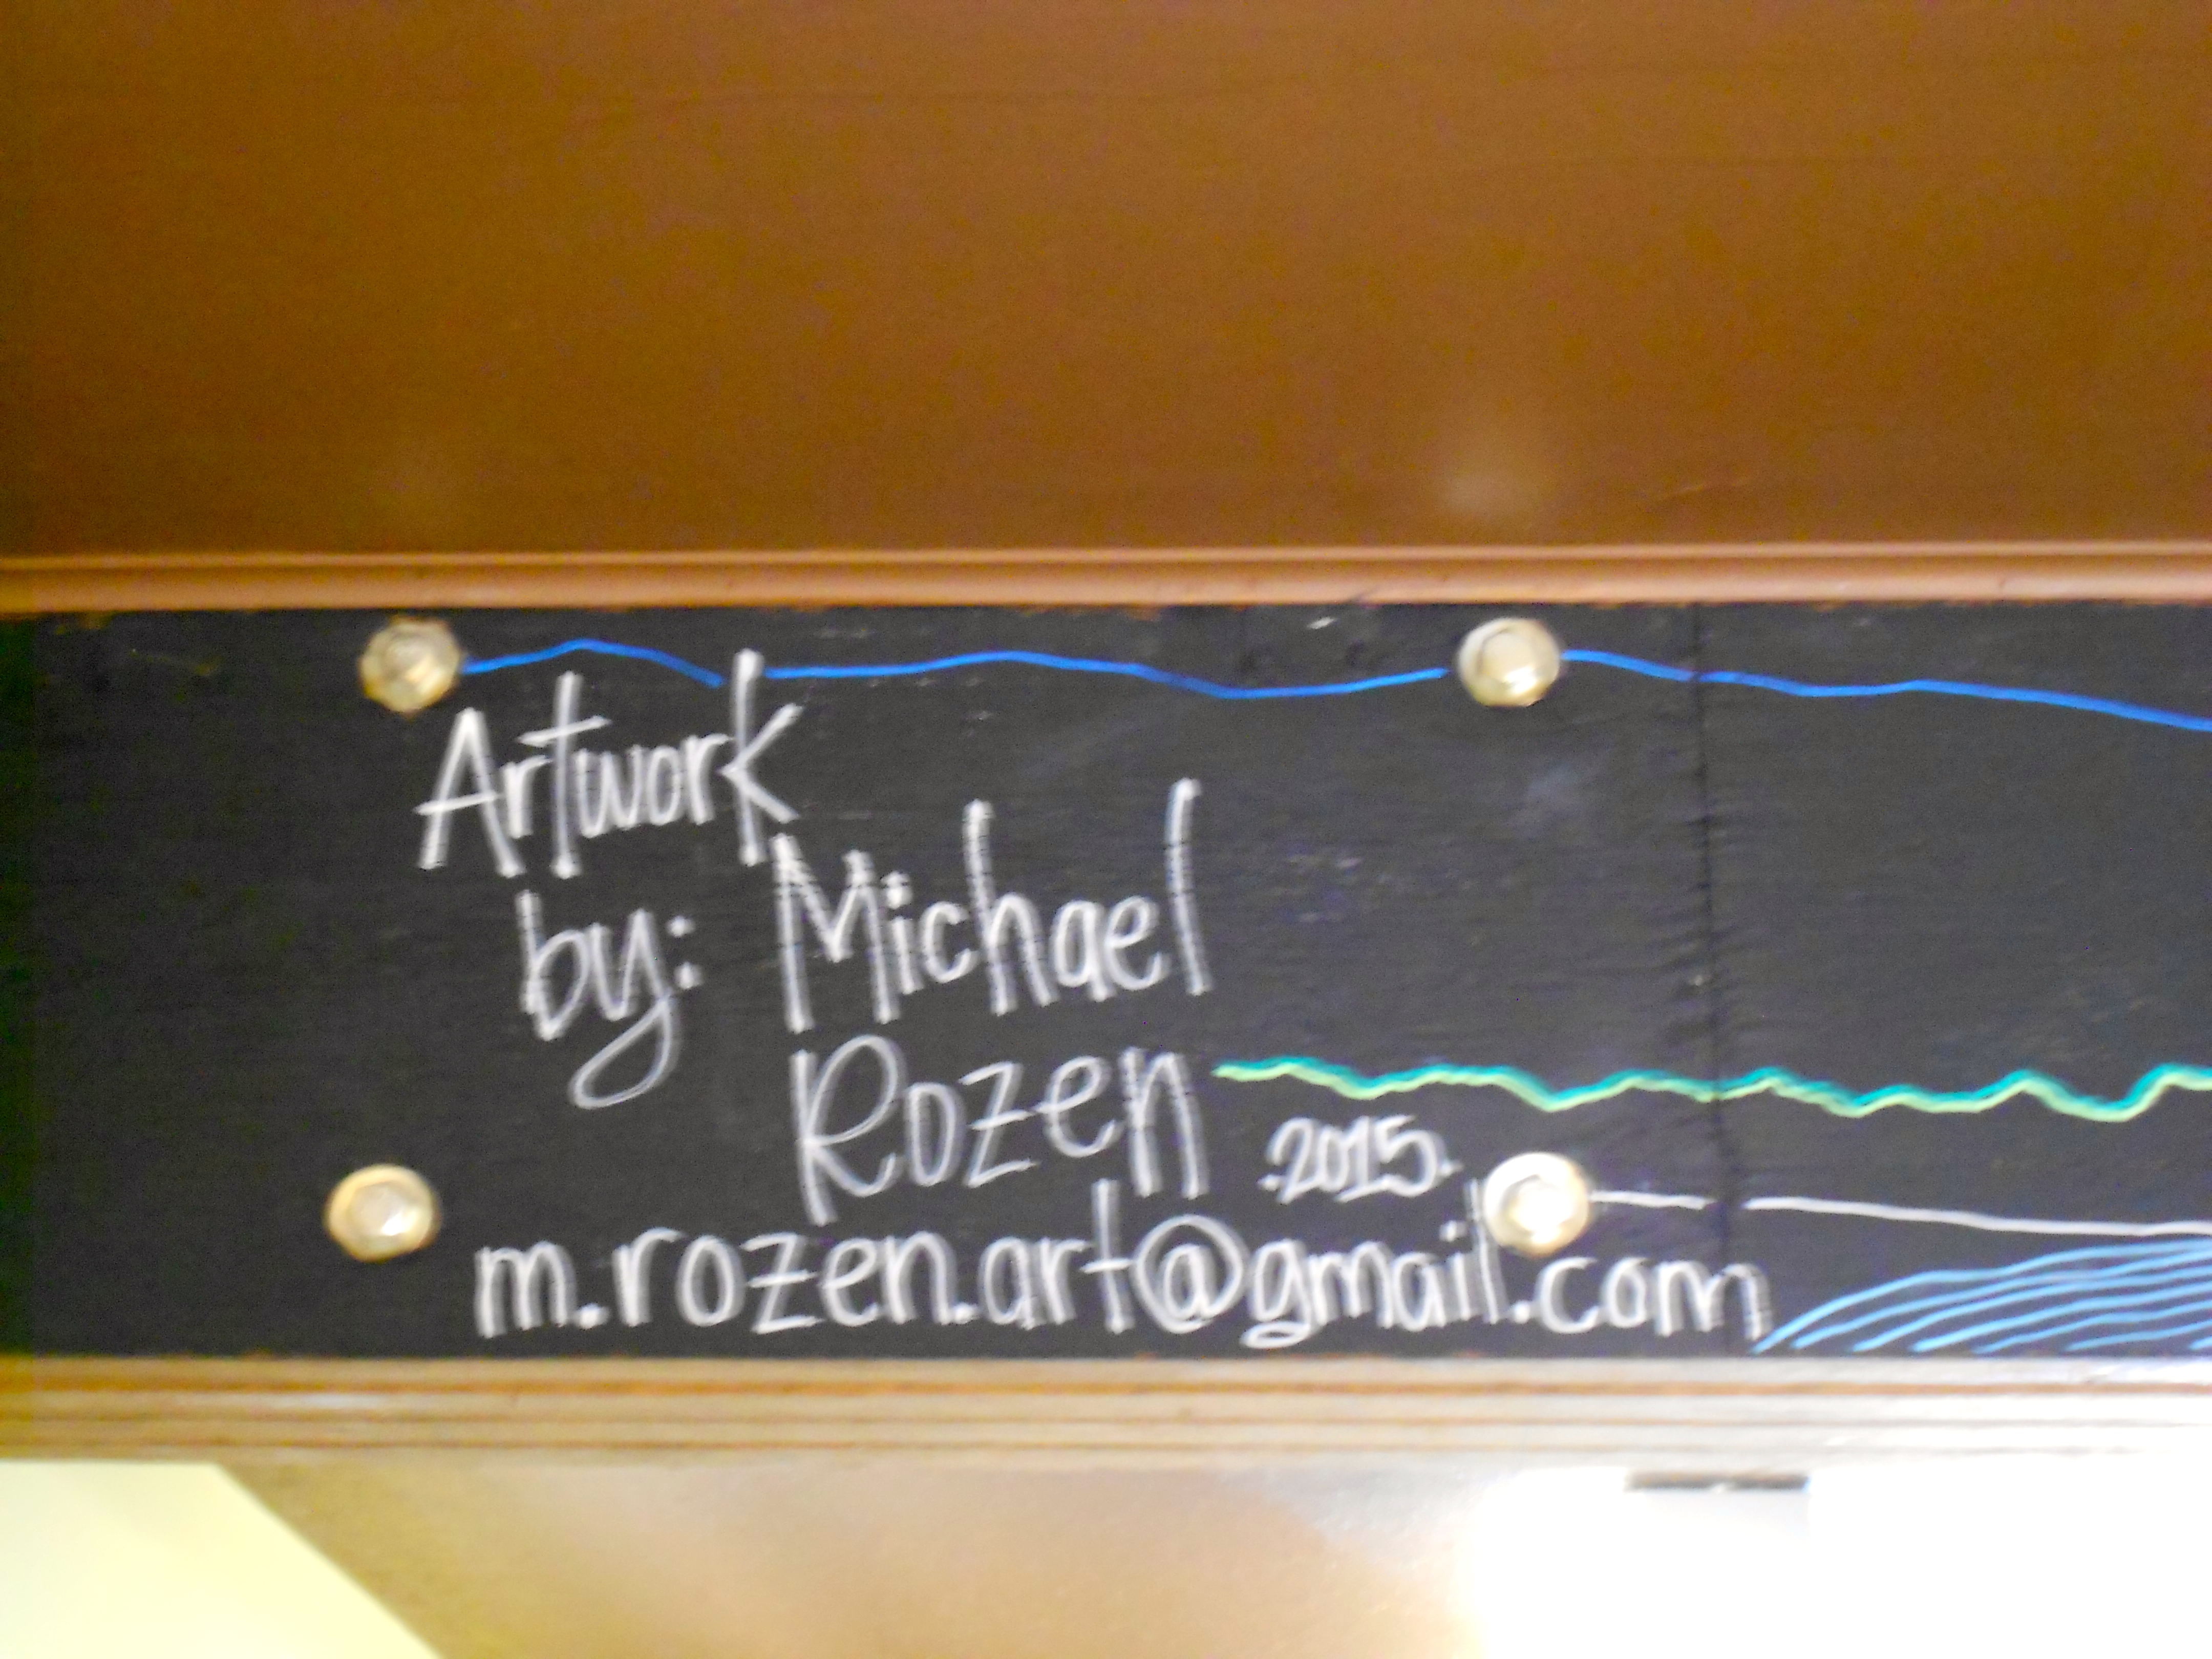 Artwork
by: Michael
Rozen
.2015.
m.rozen.art@gmail.com